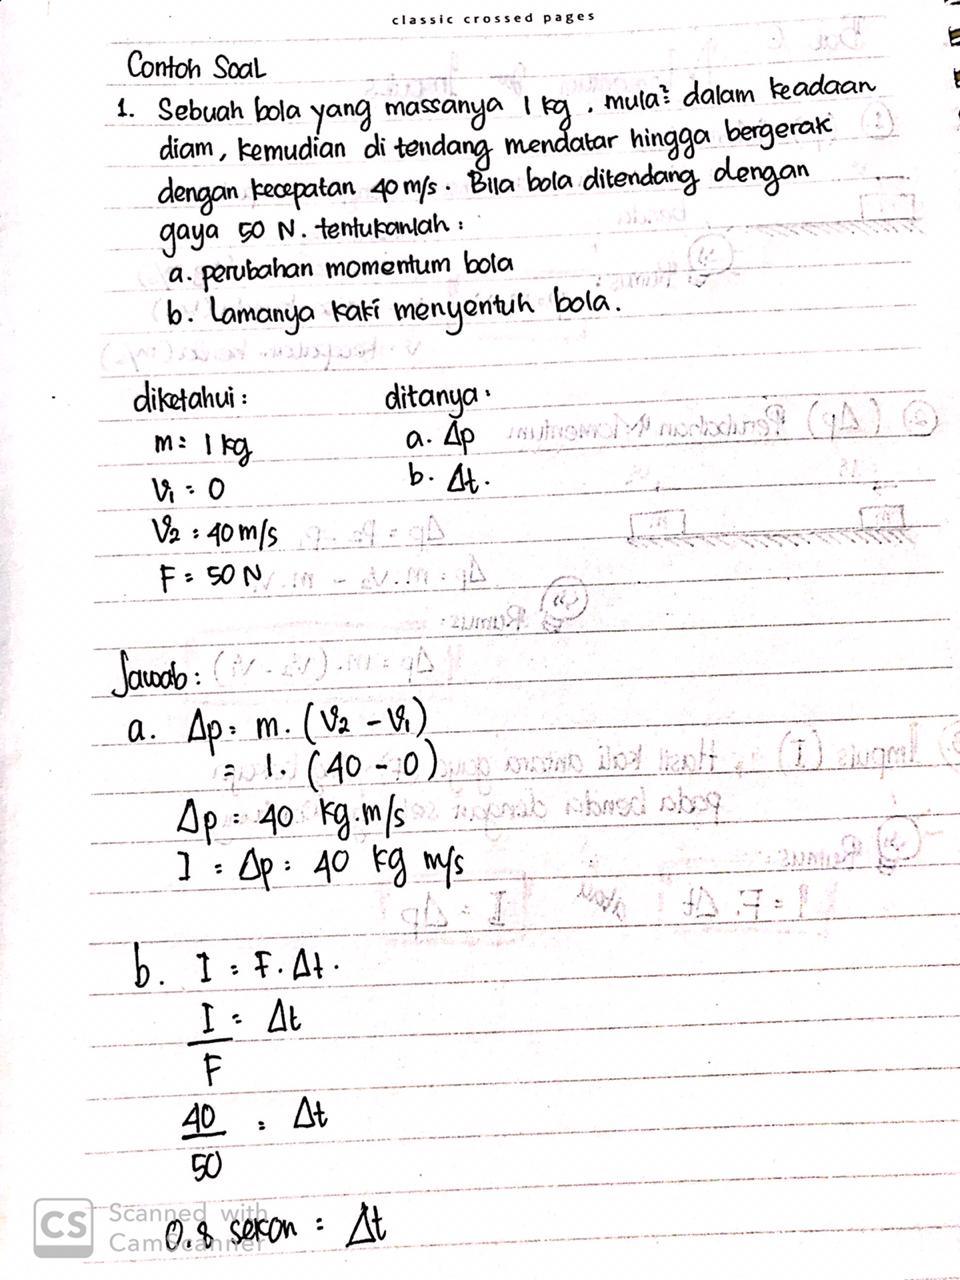 classic crossed pages
Contoh Soal
1. Sebuah bola yang massanya 1 kg, mula² dalam keadaan
diam, kemudian di tendang mendatar hingga bergerak
dengan kecepatan 40 m/s. Bila bola ditendang dengan
gaya 50 N. tentukanlah :
a. perubahan momentum bola
b. Lamanya kaki menyentuh bola.
diketahui : ditanya :
m = 1 kg a. Δp
V₁ = 0 b. Δt.
V₂ = 40 m/s
F = 50 N
Jawab :
a. Δp = m. (V₂ - V₁)
= 1. (40 - 0)
Δp = 40 kg.m/s
I = Δp = 40 kg m/s
b. I = F. Δt.
I = Δt
F
40 = Δt
50
0.8 sekon = Δt
CS Scanned with
CamScanner